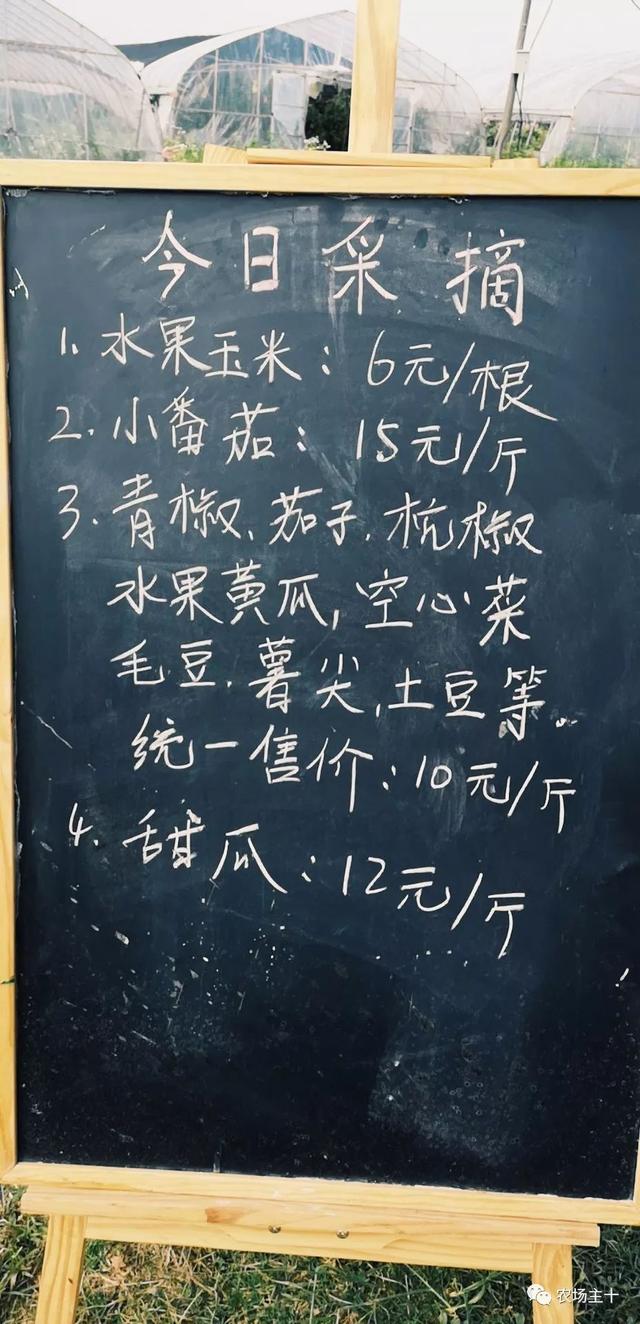 今日采摘
1. 水果玉米：6元/根
2. 小番茄：15元/斤
3. 青椒、茄子、杭椒
水果黄瓜，空心菜
毛豆、薯尖，土豆等。
统一售价：10元/斤
4. 甜瓜：12元/斤
农场主十